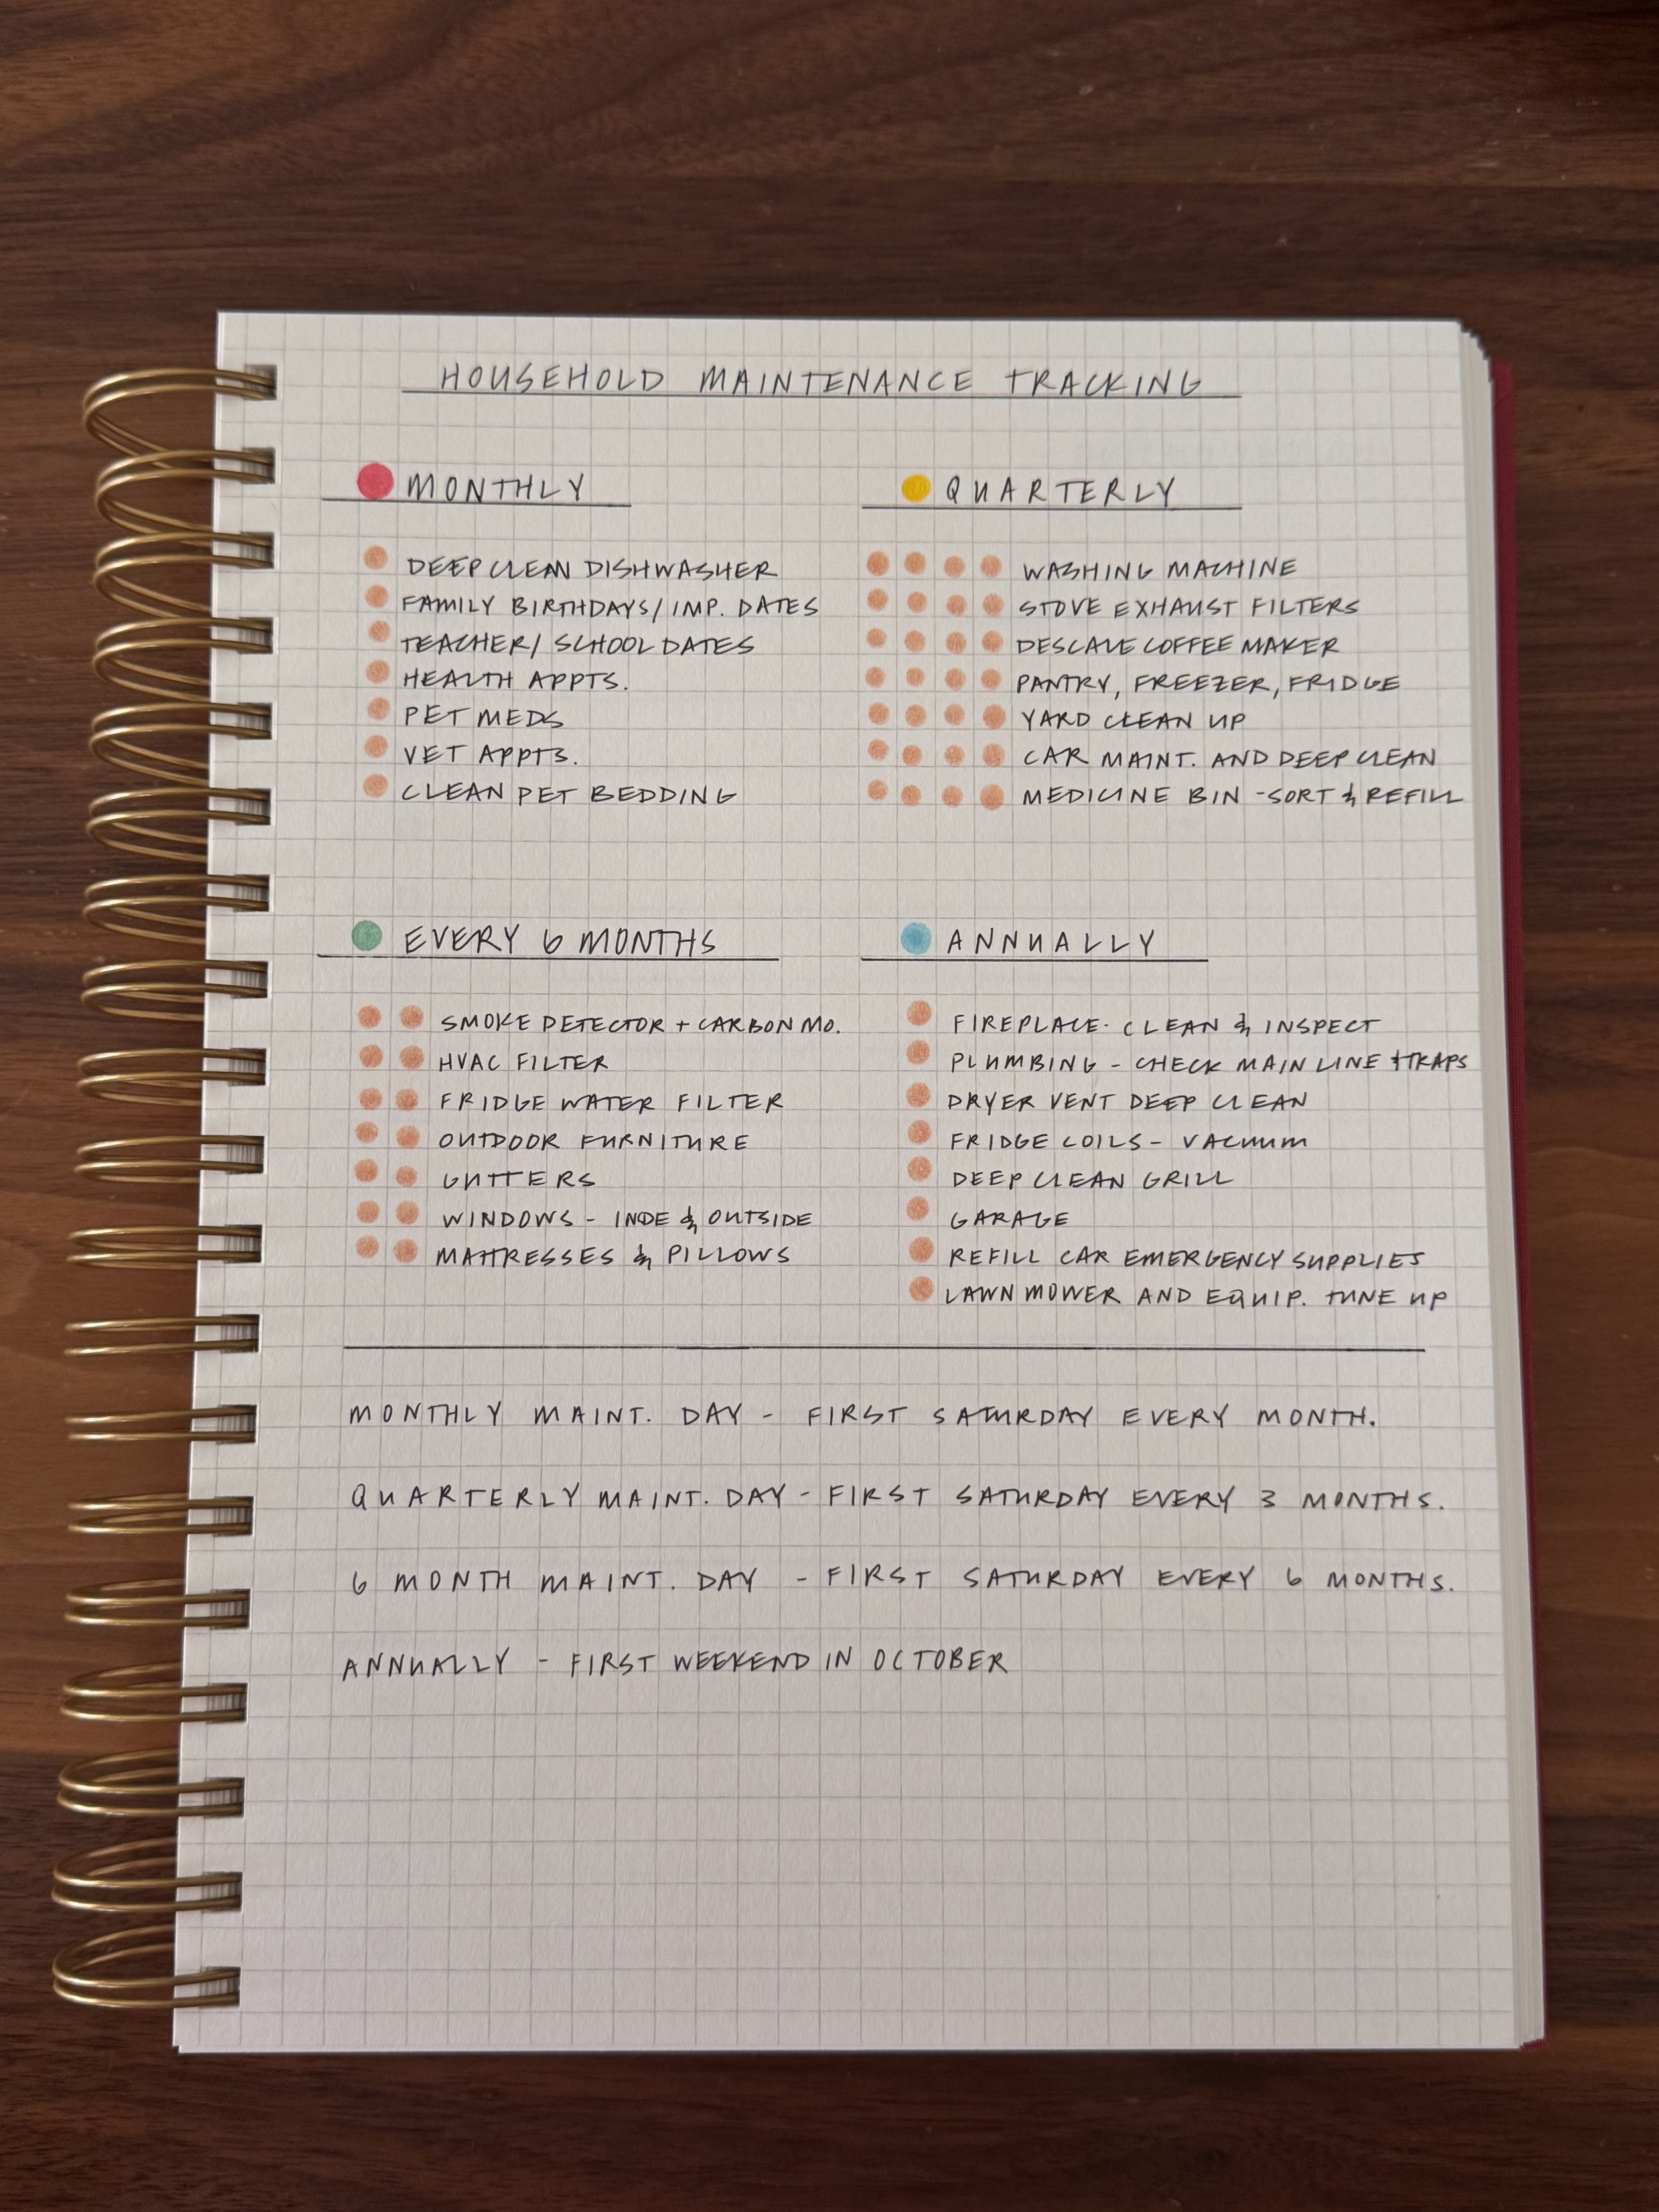 HOUSEHOLD MAINTENANCE TRACKING
MONTHLY
DEEP CLEAN DISHWASHER
FAMILY BIRTHDAYS/IMP. DATES
TEACHER/SCHOOL DATES
HEALTH APPTS.
PET MEDS
VET APPTS.
CLEAN PET BEDDING
QUARTERLY
WASHING MACHINE
STOVE EXHAUST FILTERS
DESCALE COFFEE MAKER
PANTRY, FREEZER, FRIDGE
YARD CLEAN UP
CAR MAINT. AND DEEP CLEAN
MEDICINE BIN - SORT & REFILL
EVERY 6 MONTHS
SMOKE DETECTOR + CARBON MO.
HVAC FILTER
FRIDGE WATER FILTER
OUTDOOR FURNITURE
GUTTERS
WINDOWS - INDE & OUTSIDE
MATTRESSES & PILLOWS
ANNUALLY
FIREPLACE - CLEAN & INSPECT
PLUMBING - CHECK MAIN LINE + TRAPS
DRYER VENT DEEP CLEAN
FRIDGE COILS - VACUUM
DEEP CLEAN GRILL
GARAGE
REFILL CAR EMERGENCY SUPPLIES
LAWN MOWER AND EQUIP. TUNE UP
MONTHLY MAINT. DAY - FIRST SATURDAY EVERY MONTH.
QUARTERLY MAINT. DAY - FIRST SATURDAY EVERY 3 MONTHS.
6 MONTH MAINT. DAY - FIRST SATURDAY EVERY 6 MONTHS.
ANNUALLY - FIRST WEEKEND IN OCTOBER